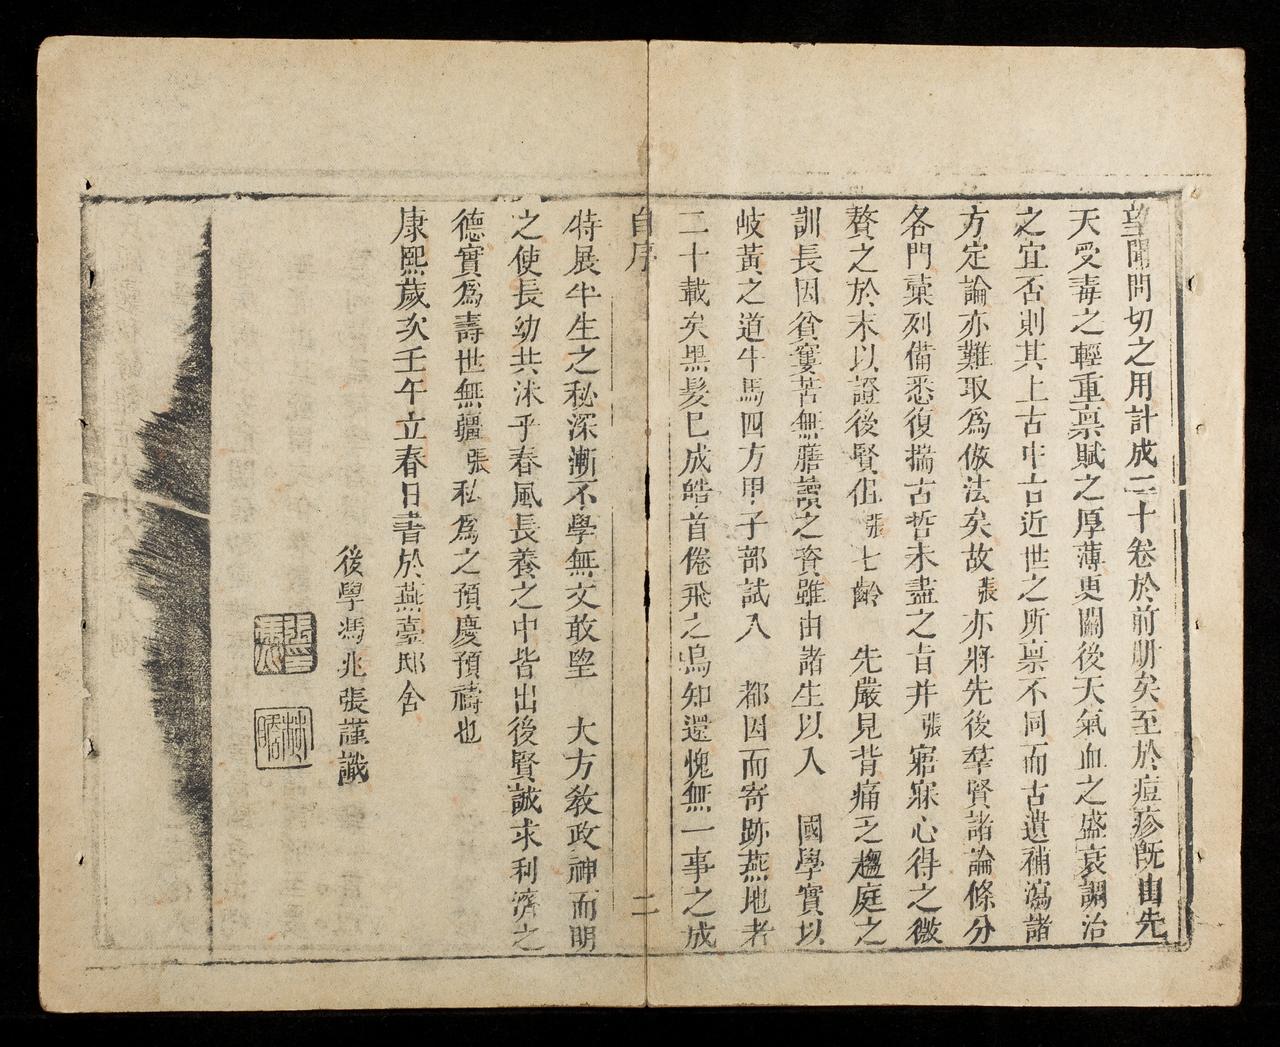 望聞問切之用計成二十卷於前册矣至於痘疹既由先
天受毒之輕重禀賦之厚薄更關後天氣血之盛衰調治
之宜否則其上古中古近世之所禀不同而古遺補瀉諸
方定論亦難取爲倣法矣故張亦將先後羣賢諸論條分
各門彚列備悉復揣古哲未盡之旨并張寤寐心得之微
贅之於末以證後賢但張七齡　先嚴見背痛乏趨庭之
訓長因貧窶苦無膳讀之資雖由諸生以入　國學實以
岐黃之道牛馬四方甲子部試入　都因而寄跡燕地者
二十載矣黑髮已成皓首倦飛之鳥知還愧無一事之成
自序　二
特展半生之秘深漸不學無文敢望　大方敎政神而明
之使長幼共沐乎春風長養之中皆出後賢誠求利濟之
德實爲壽世無疆張私爲之預慶預禱也
康熙歲次壬午立春日書於燕臺邸舍
後學馮兆張謹識